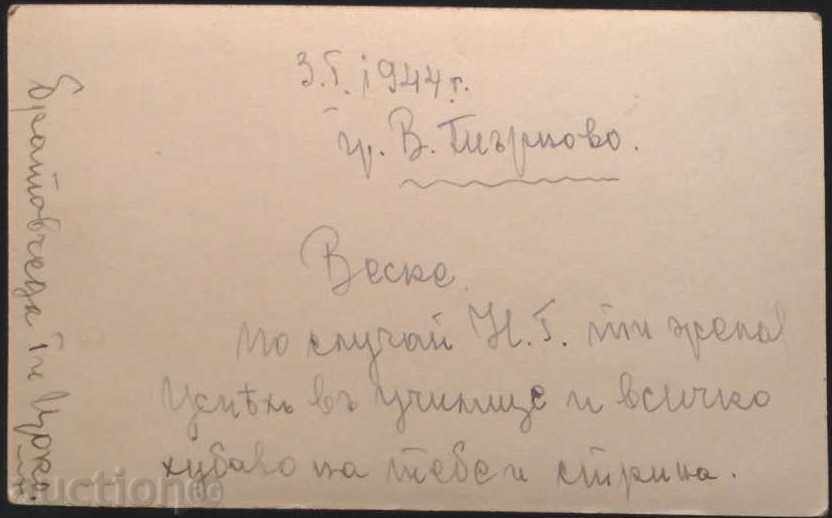 3.I.1944г.
гр. В. Търново.
Веске.
по случай Н.Г. ти желая
Успѣхъ въ училище и всичко
хубаво на тебе и стрина.
братовчеда ти Цоко.
auction